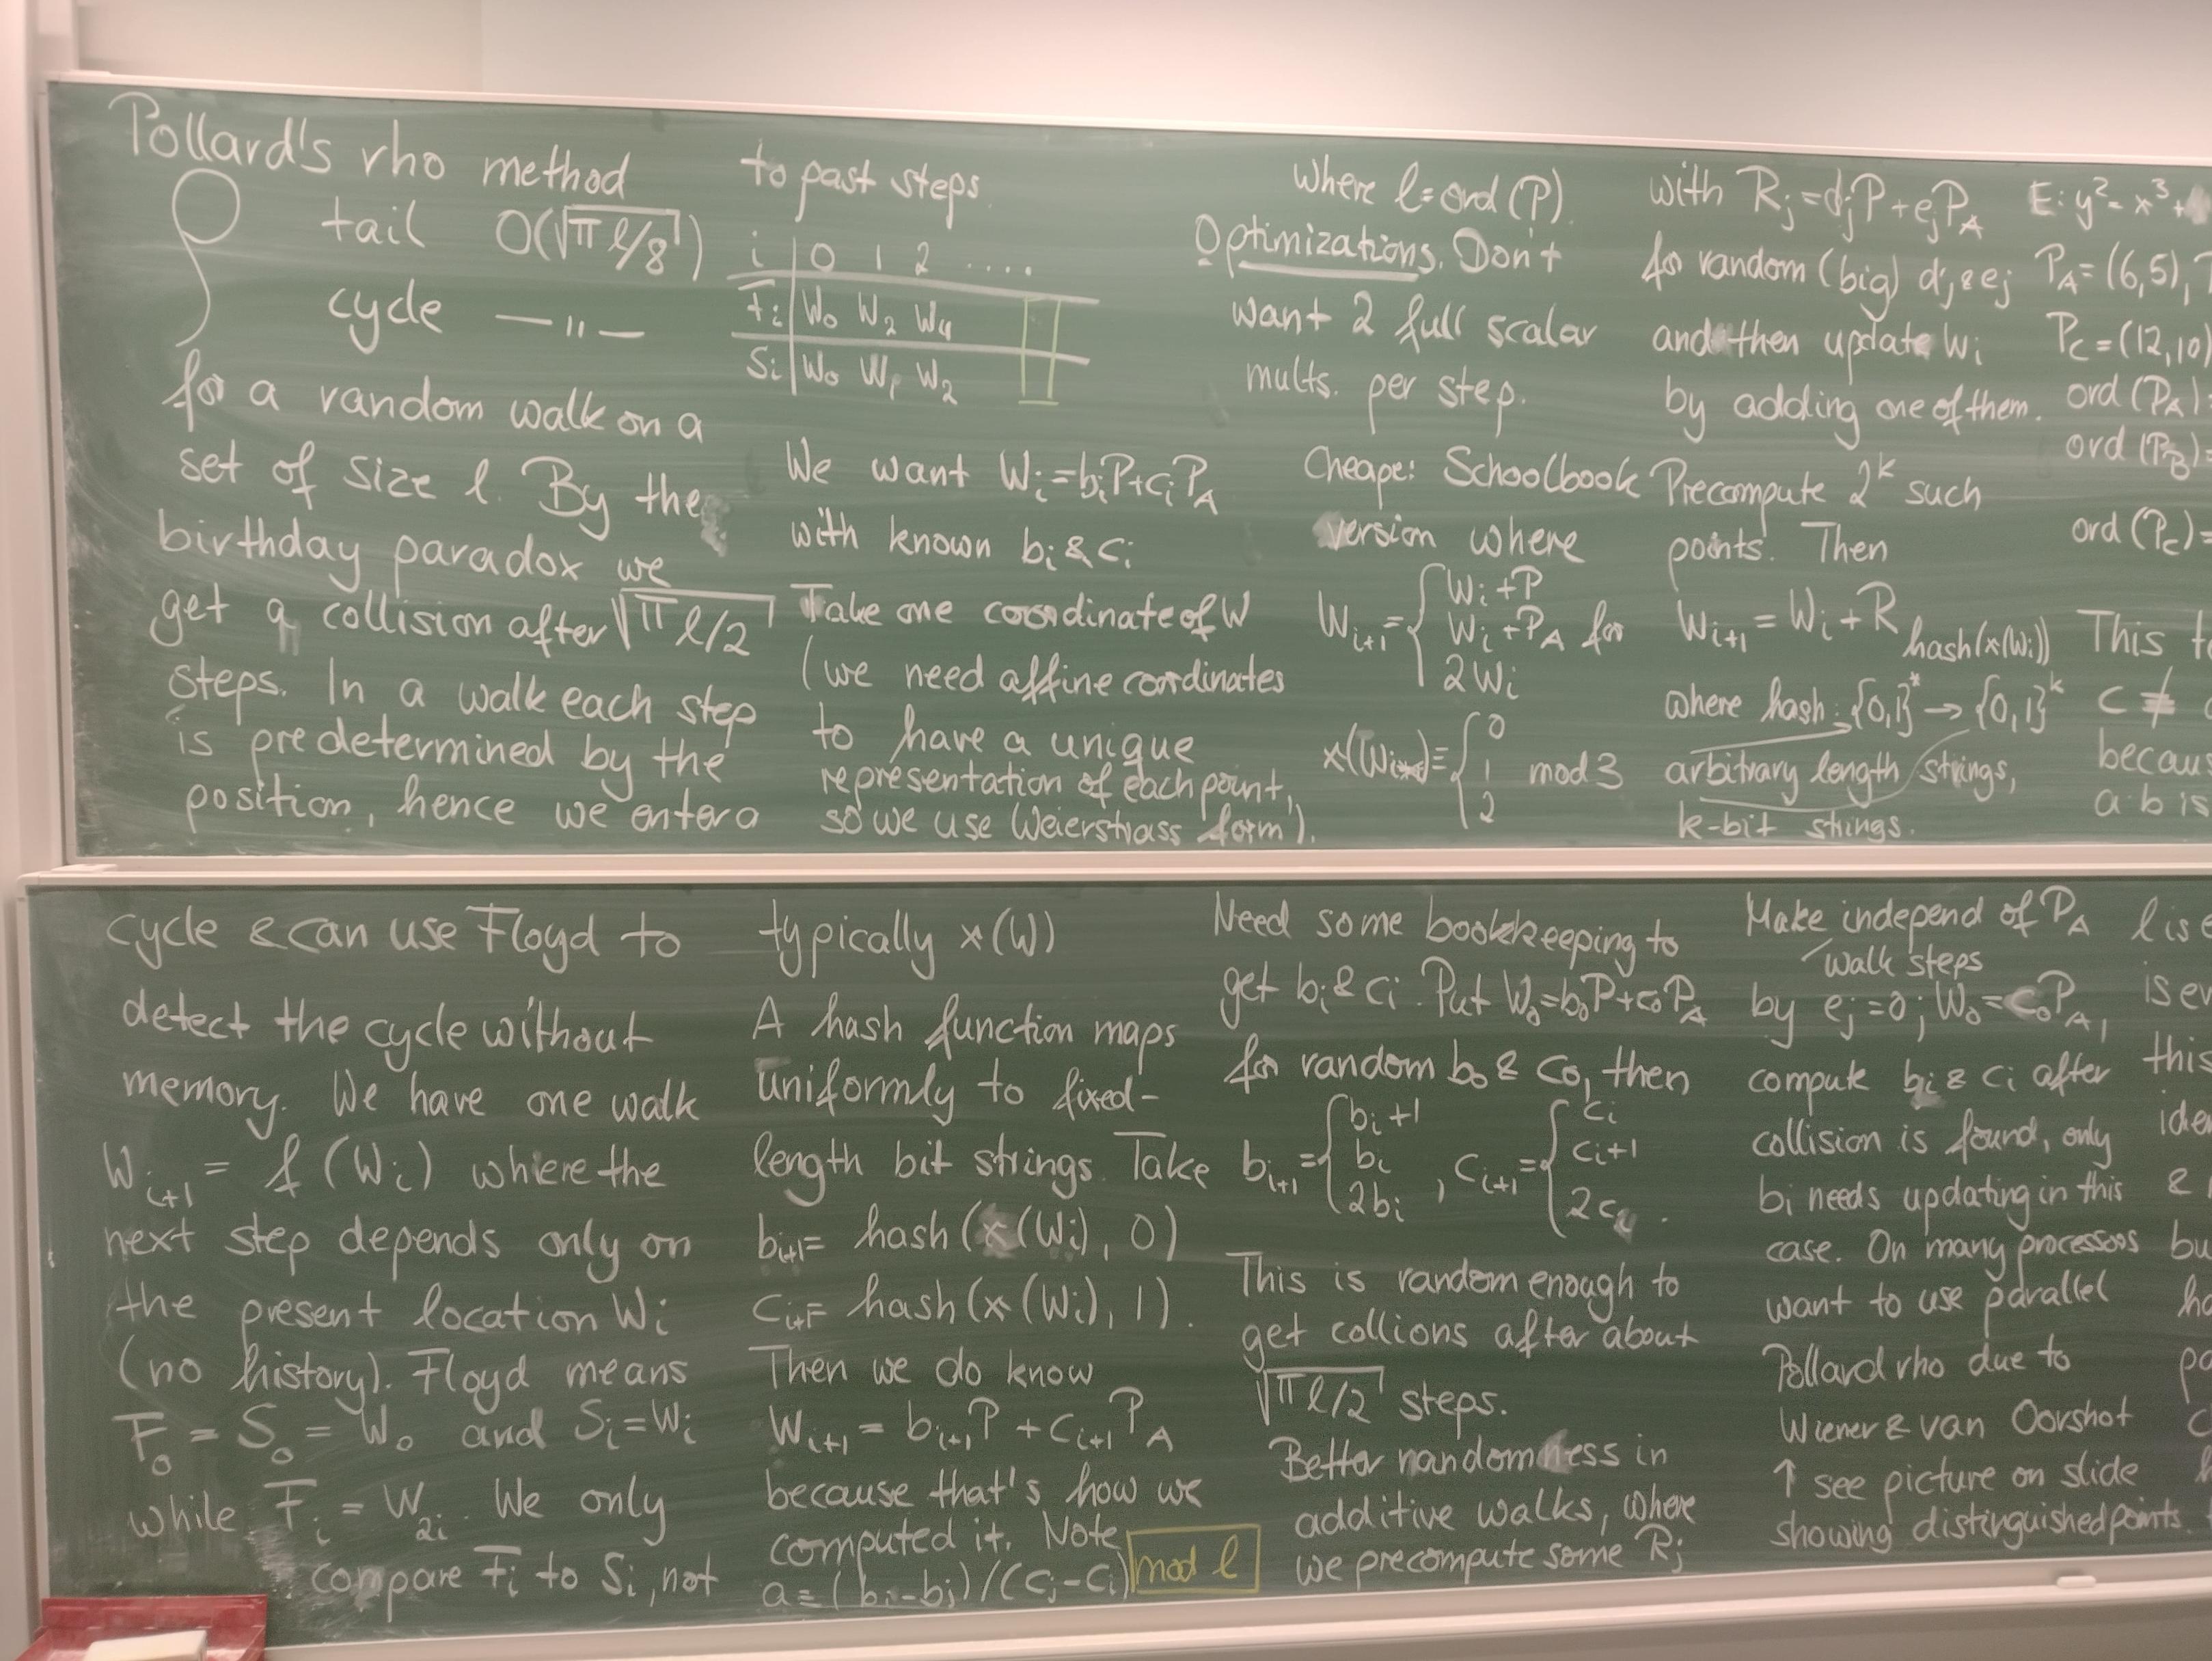 Pollard's rho method
tail O(√πl/8)
cycle —"—
for a random walk on a
set of size l. By the
birthday paradox we
get a collision after √πl/2
steps. In a walk each step
is predetermined by the
position, hence we enter a
cycle & can use Floyd to
detect the cycle without
memory. We have one walk
W_{i+1} = f(W_i) where the
next step depends only on
the present location W_i
(no history). Floyd means
F_0 = S_0 = W_0 and S_i = W_i
while F_i = W_{2i}. We only
compare F_i to S_i, not
to past steps.
i 0 1 2 ....
F_i W_0 W_2 W_4
S_i W_0 W_1 W_2
We want W_i = b_iP + c_iP_A
with known b_i & c_i
Take one coordinate of W
(we need affine coordinates
to have a unique
representation of each point,
so we use Weierstrass form).
typically x(W)
A hash function maps
uniformly to fixed-
length bit strings. Take
b_{i+1} = hash(x(W_i), 0)
c_{i+1} = hash(x(W_i), 1).
Then we do know
W_{i+1} = b_{i+1}P + c_{i+1}P_A
because that's how we
computed it. Note
a = (b_i - b_j)/(c_j - c_i) mod l
where l = ord(P).
Optimizations. Don't
want 2 full scalar
mults. per step.
Cheape: Schoolbook
version where
W_{i+1} = { W_i + P
W_i + P_A for
2W_i
x(W_i) = { 0
1 mod 3
2
Need some bookkeeping to
get b_i & c_i. Put W_0 = b_0P + c_0P_A
for random b_0 & c_0, then
b_{i+1} = { b_i + 1
b_i
2b_i , c_{i+1} = { c_i
c_i + 1
2c_i .
This is random enough to
get collions after about
√πl/2 steps.
Better randomness in
additive walks, where
we precompute some R_j
with R_j = d_jP + e_jP_A
for random (big) d_j & e_j
and then update W_i
by adding one of them.
Precompute 2^k such
points. Then
W_{i+1} = W_i + R_{hash(x(W_i))}
where hash: {0,1}^* → {0,1}^k
arbitrary length strings,
k-bit strings.
Make independ of P_A
walk steps
by e_j = 0; W_0 = c_0P_A,
compute b_i & c_i after
collision is found, only
b_i needs updating in this
case. On many processors
want to use parallel
Pollard rho due to
Wiener & van Oorshot
↑ see picture on slide
showing distinguished points.
E: y² = x³ +
P_A = (6,5),
P_C = (12,10)
ord(P_A) =
ord(P_B) =
ord(P_C) =
This
c ≠
a·b is
l is
this
&